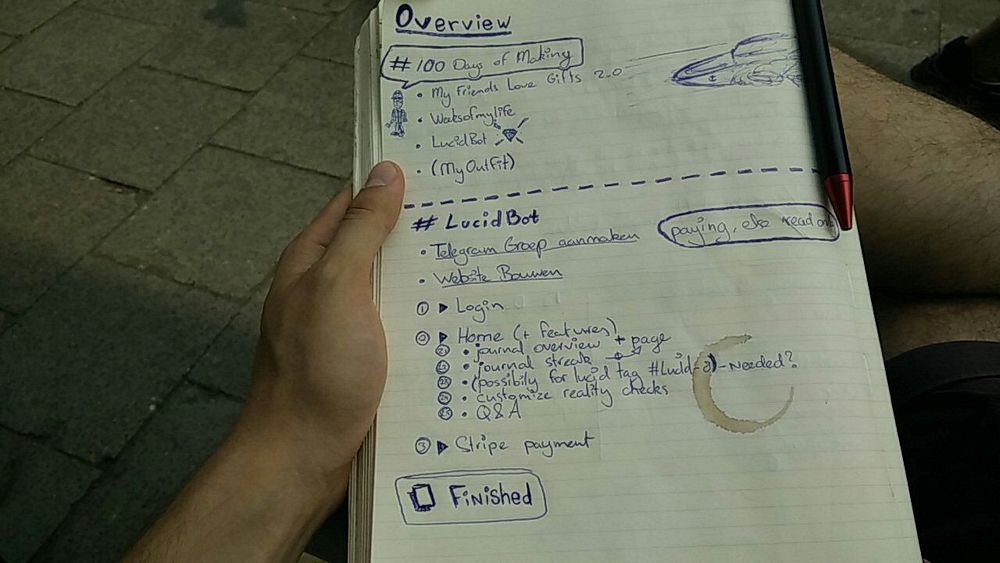 Overview
# 100 Days of Making
• My Friends Love Gifts 2.0
• Weeksofmylife
• LucidBot
• (MyOutfit)
# LucidBot
paying, else read only
• Telegram Groep aanmaken
• Website Bouwen
① ▶ Login
② ▶ Home (+ features)
• journal overview + page
• journal streak
• (possibily for lucid tag #Lucid-2) - Needed?
• customize reality checks
• Q&A
③ ▶ Stripe payment
Finished